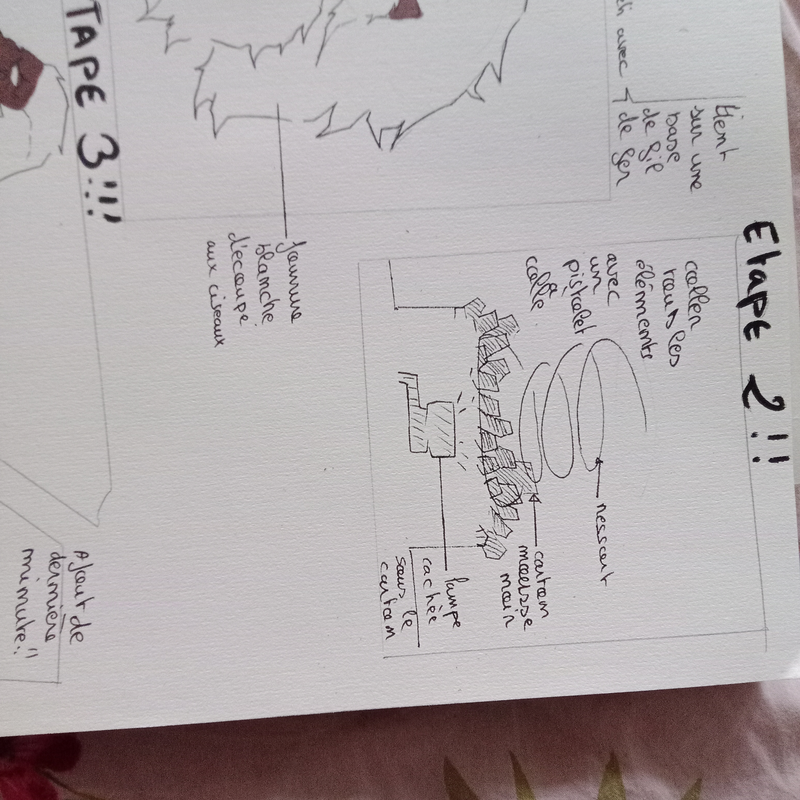 tient
sur une
base
de fil
de fer
avec
fourrure
blanche
découpé
aux ciseaux
Etape 2!!
coller
tous les
éléments
avec
un
pistolet
à
colle
ressort
carton
mousse
noir
lampe
cachée
sous le
carton
TAPE 3!!!
Ajout de
dernière
minute!!